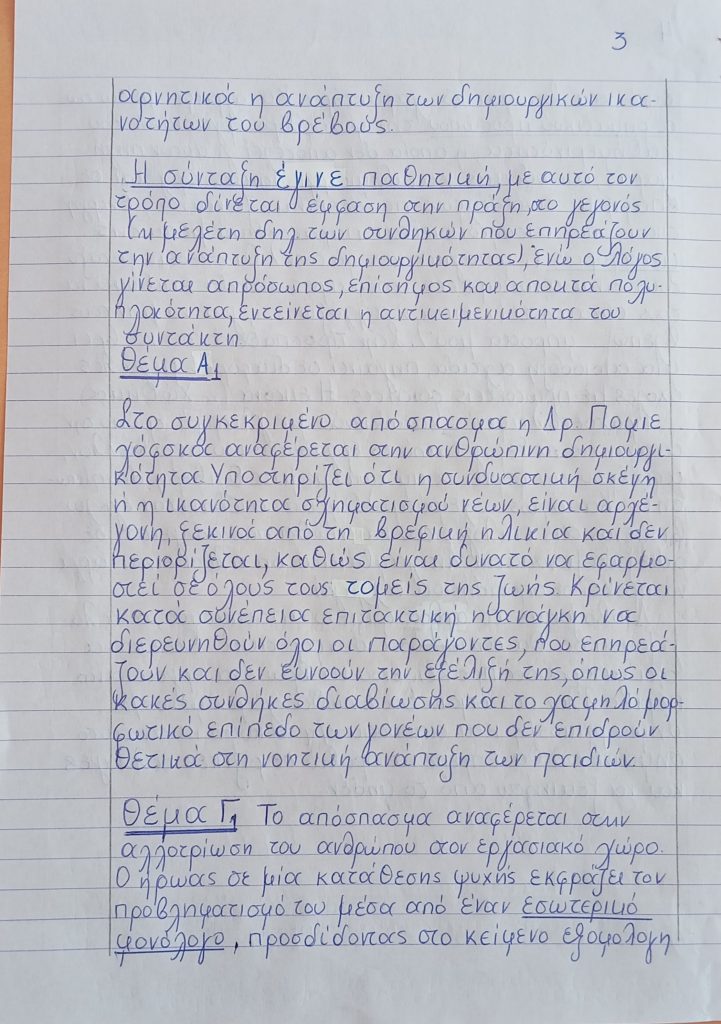 3
αρνητικά η ανάπτυξη των δημιουργικών ικα-
νοτήτων του βρέβους.
Η σύνταξη έγινε παθητική, με αυτό τον
τρόπο δίνεται έμφαση στην πράξη, στο γεγονός
(η μελέτη δηλ. των συνθηκών που επηρεάζουν
την ανάπτυξη της δημιουργικότητας), ενώ ο λόγος
γίνεται απρόσωπος, επίσημος και αποκτά πολυ-
πλοκότητα, εντείνεται η αντικειμενικότητα του
συντάκτη
Θέμα Α1
Στο συγκεκριμένο απόσπασμα η Δρ. Πομιε
χόφσκα αναφέρεται στην ανθρώπινη δημιουργι-
κότητα. Υποστηρίζει ότι η συνδυαστική σκέψη
ή η ικανότητα σχηματισμού νέων, είναι αρχέ-
γονη, ξεκινά από τη βρεφική ηλικία και δεν
περιορίζεται, καθώς είναι δυνατό να εφαρμο-
στεί σε όλους τους τομείς της ζωής. Κρίνεται
κατά συνέπεια επιτακτική η ανάγκη να
διερευνηθούν όλοι οι παράγοντες, που επηρεά-
ζουν και δεν ευνοούν την εξέλιξή της, όπως οι
κακές συνθήκες διαβίωσης και το χαμηλό μορ-
φωτικό επίπεδο των γονέων που δεν επιδρούν
θετικά στη νοητική ανάπτυξη των παιδιών.
Θέμα Γ1 Το απόσπασμα αναφέρεται στην
αλλοτρίωση του ανθρώπου στον εργασιακό χώρο.
Ο ήρωας σε μία κατάθεσης ψυχής εκφράζει τον
προβληματισμό του μέσα από έναν εσωτερικό
μονόλογο, προσδίδοντας στο κείμενο εξομολογη